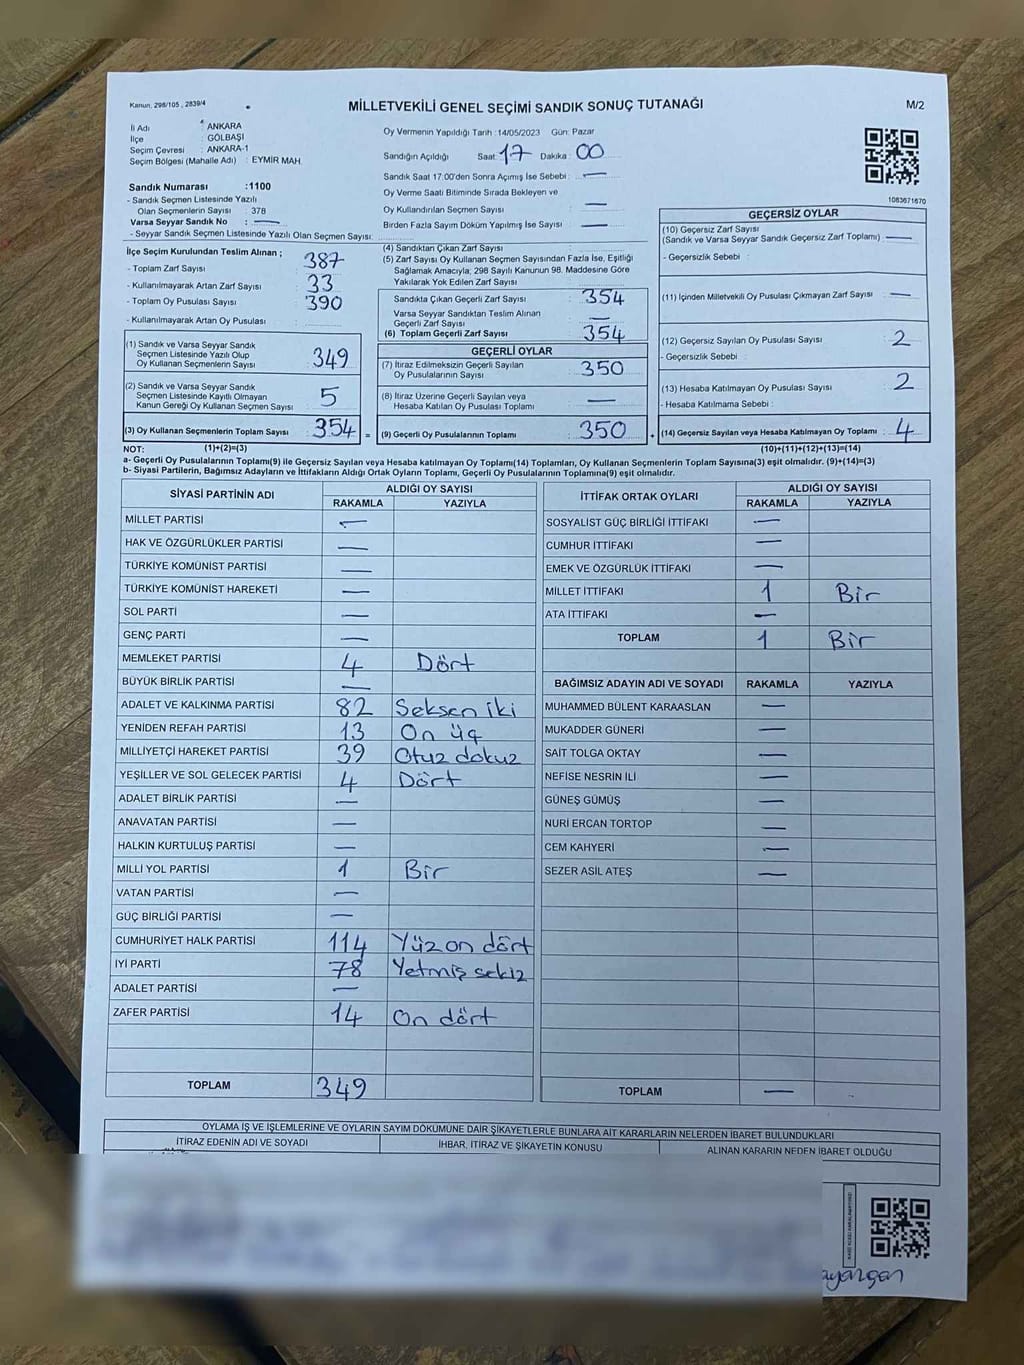 Kanun, 298/105 , 2839/4
MİLLETVEKİLİ GENEL SEÇİMİ SANDIK SONUÇ TUTANAĞI
M/2
İl Adı : ANKARA
İlçe : GÖLBAŞI
Seçim Çevresi : ANKARA-1
Seçim Bölgesi (Mahalle Adı) : EYMİR MAH.
Sandık Numarası :1100
- Sandık Seçmen Listesinde Yazılı
Olan Seçmenlerin Sayısı : 378
Varsa Seyyar Sandık No : —
- Seyyar Sandık Seçmen Listesinde Yazılı Olan Seçmen Sayısı:
Oy Vermenin Yapıldığı Tarih :14/05/2023 Gün: Pazar
Sandığın Açıldığı Saat: 17 Dakika : 00
Sandık Saat 17:00'den Sonra Açımış İse Sebebi : —
Oy Verme Saati Bitiminde Sırada Bekleyen ve
Oy Kullandırılan Seçmen Sayısı : —
Birden Fazla Sayım Döküm Yapılmış İse Sayısı : —
1083671670
İlçe Seçim Kurulundan Teslim Alınan ;
- Toplam Zarf Sayısı : 387
- Kullanılmayarak Artan Zarf Sayısı : 33
- Toplam Oy Pusulası Sayısı : 390
- Kullanılmayarak Artan Oy Pusulası :
(1) Sandık ve Varsa Seyyar Sandık
Seçmen Listesinde Yazılı Olup
Oy Kullanan Seçmenlerin Sayısı : 349
(2) Sandık ve Varsa Seyyar Sandık
Seçmen Listesinde Kayıtlı Olmayan
Kanun Gereği Oy Kullanan Seçmen Sayısı : 5
(3) Oy Kullanan Seçmenlerin Toplam Sayısı : 354 =
(4) Sandıktan Çıkan Zarf Sayısı :
(5) Zarf Sayısı Oy Kullanan Seçmen Sayısından Fazla İse, Eşitliği
Sağlamak Amacıyla; 298 Sayılı Kanunun 98. Maddesine Göre
Yakılarak Yok Edilen Zarf Sayısı :
Sandıkta Çıkan Geçerli Zarf Sayısı : 354
Varsa Seyyar Sandıktan Teslim Alınan
Geçerli Zarf Sayısı : —
(6) Toplam Geçerli Zarf Sayısı : 354
GEÇERLİ OYLAR
(7) İtiraz Edilmeksizin Geçerli Sayılan
Oy Pusulalarının Sayısı : 350
(8) İtiraz Üzerine Geçerli Sayılan veya
Hesaba Katılan Oy Pusulası Toplamı : —
(9) Geçerli Oy Pusulalarının Toplamı : 350 +
GEÇERSİZ OYLAR
(10) Geçersiz Zarf Sayısı
(Sandık ve Varsa Seyyar Sandık Geçersiz Zarf Toplamı) : —
- Geçersizlik Sebebi :
(11) İçinden Milletvekili Oy Pusulası Çıkmayan Zarf Sayısı : —
(12) Geçersiz Sayılan Oy Pusulası Sayısı : 2
- Geçersizlik Sebebi :
(13) Hesaba Katılmayan Oy Pusulası Sayısı : 2
- Hesaba Katılmama Sebebi :
(14) Geçersiz Sayılan veya Hesaba Katılmayan Oy Toplamı : 4
NOT: (1)+(2)=(3) (10)+(11)+(12)+(13)=(14)
a- Geçerli Oy Pusulalarının Toplamı(9) ile Geçersiz Sayılan veya Hesaba katılmayan Oy Toplamı(14) Toplamları, Oy Kullanan Seçmenlerin Toplam Sayısına(3) eşit olmalıdır. (9)+(14)=(3)
b- Siyasi Partilerin, Bağımsız Adayların ve İttifakların Aldığı Ortak Oyların Toplamı, Geçerli Oy Pusulalarının Toplamına(9) eşit olmalıdır.
SİYASİ PARTİNİN ADI ALDIĞI OY SAYISI
RAKAMLA YAZIYLA
MİLLET PARTİSİ —
HAK VE ÖZGÜRLÜKLER PARTİSİ —
TÜRKİYE KOMÜNİST PARTİSİ —
TÜRKİYE KOMÜNİST HAREKETİ —
SOL PARTİ —
GENÇ PARTİ —
MEMLEKET PARTİSİ 4 Dört
BÜYÜK BİRLİK PARTİSİ —
ADALET VE KALKINMA PARTİSİ 82 Seksen iki
YENİDEN REFAH PARTİSİ 13 On üç
MİLLİYETÇİ HAREKET PARTİSİ 39 Otuz dokuz
YEŞİLLER VE SOL GELECEK PARTİSİ 4 Dört
ADALET BİRLİK PARTİSİ —
ANAVATAN PARTİSİ —
HALKIN KURTULUŞ PARTİSİ —
MİLLİ YOL PARTİSİ 1 Bir
VATAN PARTİSİ —
GÜÇ BİRLİĞİ PARTİSİ —
CUMHURİYET HALK PARTİSİ 114 Yüz on dört
İYİ PARTİ 78 Yetmiş sekiz
ADALET PARTİSİ —
ZAFER PARTİSİ 14 On dört
TOPLAM 349
İTTİFAK ORTAK OYLARI ALDIĞI OY SAYISI
RAKAMLA YAZIYLA
SOSYALİST GÜÇ BİRLİĞİ İTTİFAKI —
CUMHUR İTTİFAKI —
EMEK VE ÖZGÜRLÜK İTTİFAKI —
MİLLET İTTİFAKI 1 Bir
ATA İTTİFAKI —
TOPLAM 1 Bir
BAĞIMSIZ ADAYIN ADI VE SOYADI RAKAMLA YAZIYLA
MUHAMMED BÜLENT KARAASLAN —
MUKADDER GÜNERİ —
SAİT TOLGA OKTAY —
NEFİSE NESRİN İLİ —
GÜNEŞ GÜMÜŞ —
NURİ ERCAN TORTOP —
CEM KAHYERİ —
SEZER ASİL ATEŞ —
TOPLAM —
OYLAMA İŞ VE İŞLEMLERİNE VE OYLARIN SAYIM DÖKÜMÜNE DAİR ŞİKAYETLERLE BUNLARA AİT KARARLARIN NELERDEN İBARET BULUNDUKLARI
İTİRAZ EDENİN ADI VE SOYADI İHBAR, İTİRAZ VE ŞİKAYETİN KONUSU ALINAN KARARIN NEDEN İBARET OLDUĞU